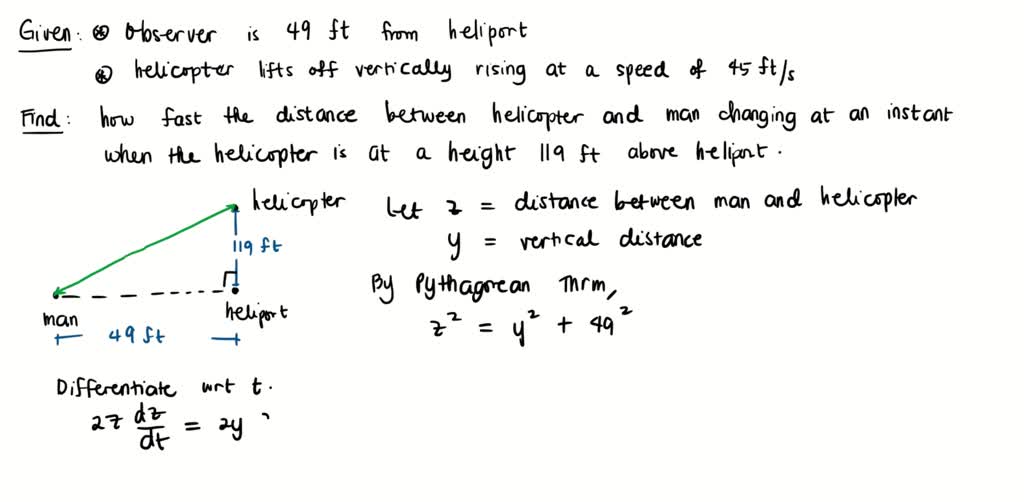 Given: ⊛ Observer is 49 ft from heliport
⊛ helicopter lifts off vertically rising at a speed of 45 ft/s
Find: how fast the distance between helicopter and man changing at an instant
when the helicopter is at a height 119 ft above heliport.
helicopter
119 ft
man
heliport
49 ft
Let z = distance between man and helicopter
y = vertical distance
By Pythagorean Thrm,
z² = y² + 49²
Differentiate wrt t.
2z dz/dt = 2y